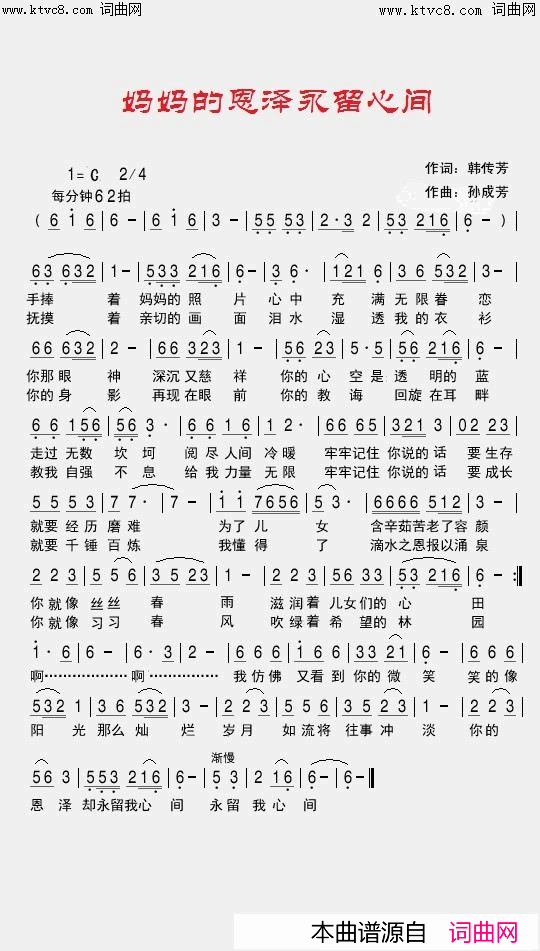 www.ktvc8.com 词曲网 www.ktvc8.com 词曲网
妈妈的恩泽永留心间
作词：韩传芳
1=C 2/4
每分钟62拍
作曲：孙成芳
( 6 1 6 | 6 - | 6 1 6 | 3 - | 55 53 | 2·3 2 | 53 216 | 6 - )
63 632 | 1 - | 533 216 | 6 - | 3 6· | 1 2 1 6 | 3 6 532 | 3 - |
手捧 着 妈妈的 照 片 心中 充 满 无限眷 恋
抚摸 着 亲切的 画 面 泪水 湿 透 我的衣 衫
66 632 | 2 - | 66 323 | 1 - | 56 23 | 5·5 | 56 216 | 6 - |
你那眼 神 深沉又慈 祥 你的心 空是透 明的蓝
你的身 影 再现在眼 前 你的教 诲 回旋在耳 畔
6 6 156 | 56 3· | 6 616 | 1 2· | 66 65 | 321 3 | 02 23 |
走过 无数 坎坷 阅尽人间 冷暖 牢牢记住 你说的话 要生存
教我 自强 不息 给我力量 无限 牢牢记住 你说的话 要成长
55 53 | 7 7· | 7 - | 1 1 | 7656 | 5 3· | 6666 512 | 3 - |
就要经历 磨难 为了 儿 女 含辛茹苦老了容 颜
就要千锤 百炼 我懂 得 了 滴水之恩报以涌 泉
2 2 3 | 5 5 6 | 3 5 23 | 1 - | 2 2 3 | 5 5 6 | 53 216 | 6 - :‖
你就像 丝丝 春 雨 滋润着 儿女们的 心 田
你就像 习习 春 风 吹绿着 希望的 林 园
1· 6 | 6 - | 6· 3 | 2 - | 6 6 6 | 5 6 1 3 | 2 1 6 | 6 - | 6 6 6 |
啊……………… 啊……………… 我仿佛 又看到 你的微 笑 笑的像
532 1 | 3 6 | 532 | 3 - | 2 2 3 | 5 5 6 | 3 523 | 1 - | 2 2 |
阳 光 那么 灿 烂 岁月 如流将 往事冲 淡 你的
渐慢
56 3 | 553 216 | 6 - | 5 3 | 2 16 | 6 - | 6 - ‖
恩 泽 却永留我心 间 永留 我心 间
本曲谱源自 词曲网